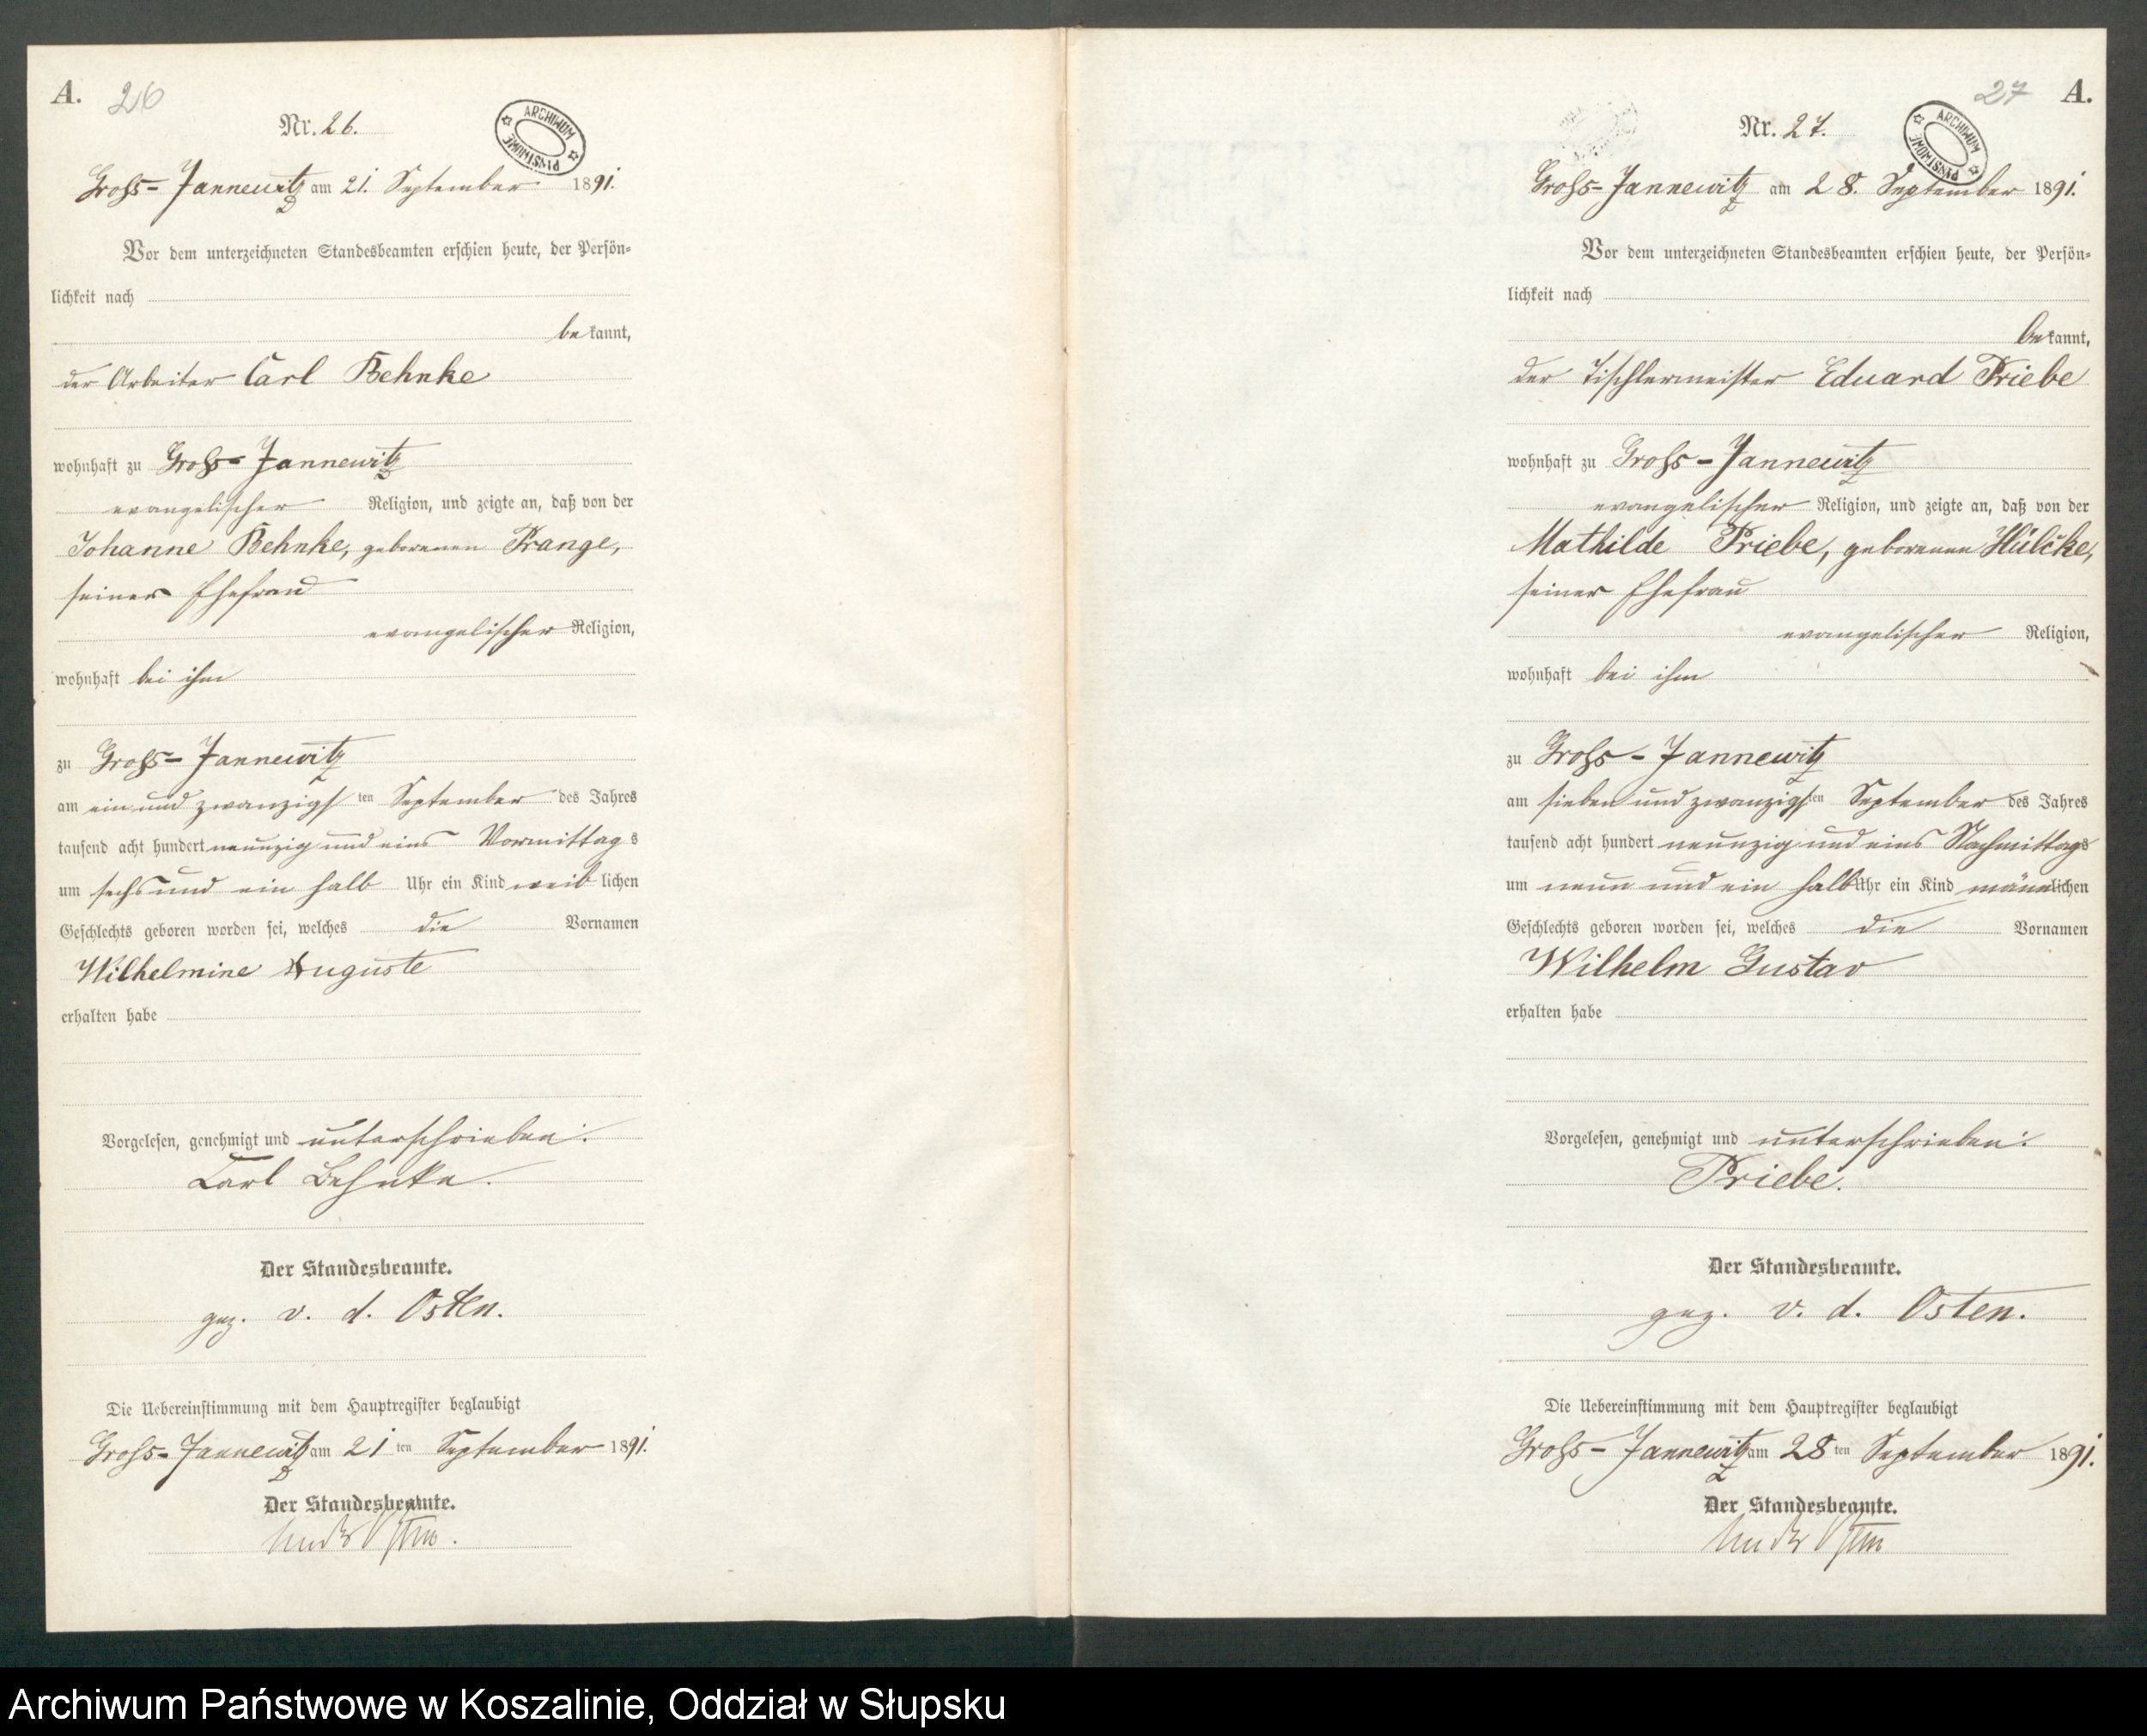 A. 26
Nr. 26.
ARCHIWUM PAŃSTWOWE
Groß-Jannewitz am 21. September 1891.
Vor dem unterzeichneten Standesbeamten erschien heute, der Persön-
lichkeit nach
bekannt,
der Arbeiter Carl Behnke
wohnhaft zu Groß-Jannewitz
evangelischer Religion, und zeigte an, daß von der
Johanne Behnke, geborenen Prange,
seiner Ehefrau
evangelischer Religion,
wohnhaft bei ihm
zu Groß-Jannewitz
am ein und zwanzigsten September des Jahres
tausend acht hundert neunzig und eins Vormittags
um sechs und ein halb Uhr ein Kind weiblichen
Geschlechts geboren worden sei, welches die Vornamen
Wilhelmine Auguste
erhalten habe
Vorgelesen, genehmigt und unterschrieben:
Carl Behnke.
Der Standesbeamte.
gez. v. d. Osten.
Die Uebereinstimmung mit dem Hauptregister beglaubigt
Groß-Jannewitz am 21ten September 1891.
Der Standesbeamte.
27 A.
Nr. 27.
ARCHIWUM PAŃSTWOWE
Groß-Jannewitz am 28. September 1891.
Vor dem unterzeichneten Standesbeamten erschien heute, der Persön-
lichkeit nach
bekannt,
der Tischlermeister Eduard Priebe
wohnhaft zu Groß-Jannewitz
evangelischer Religion, und zeigte an, daß von der
Mathilde Priebe, geborenen Hülcke,
seiner Ehefrau
evangelischer Religion,
wohnhaft bei ihm
zu Groß-Jannewitz
am sieben und zwanzigsten September des Jahres
tausend acht hundert neunzig und eins Nachmittags
um neun und ein halb Uhr ein Kind männlichen
Geschlechts geboren worden sei, welches die Vornamen
Wilhelm Gustav
erhalten habe
Vorgelesen, genehmigt und unterschrieben:
Priebe.
Der Standesbeamte.
gez. v. d. Osten.
Die Uebereinstimmung mit dem Hauptregister beglaubigt
Groß-Jannewitz am 28ten September 1891.
Der Standesbeamte.
Archiwum Państwowe w Koszalinie, Oddział w Słupsku